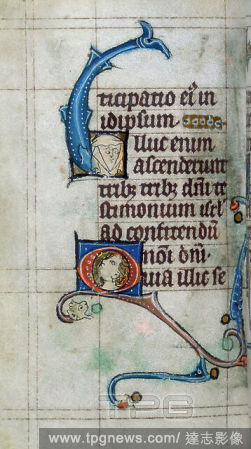 ticipatio ei' in
idipsum
Illuc enim
ascenderunt
trib; trib; dñi te
stimonium isrl'
ad confitendū
nōi dñi
Quia illuc se
TPG
www.tpgnews.com/ 達志影像